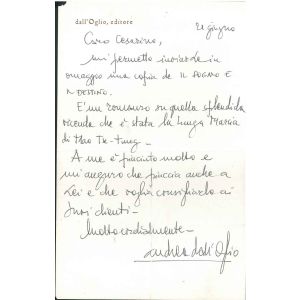 dall'Oglio, editore
21 giugno
Caro Cesarino,
mi permetto inviarle in
omaggio una copia de IL SOGNO E
IL DESTINO.
E' un romanzo su quella splendida
vicenda che è stata la Lunga Marcia
di Mao Tse-tung.
A me è piaciuto molto e
mi auguro che piaccia anche a
Lei e che voglia consigliarlo ai
Suoi clienti.
Molto cordialmente
Andrea dall'Oglio